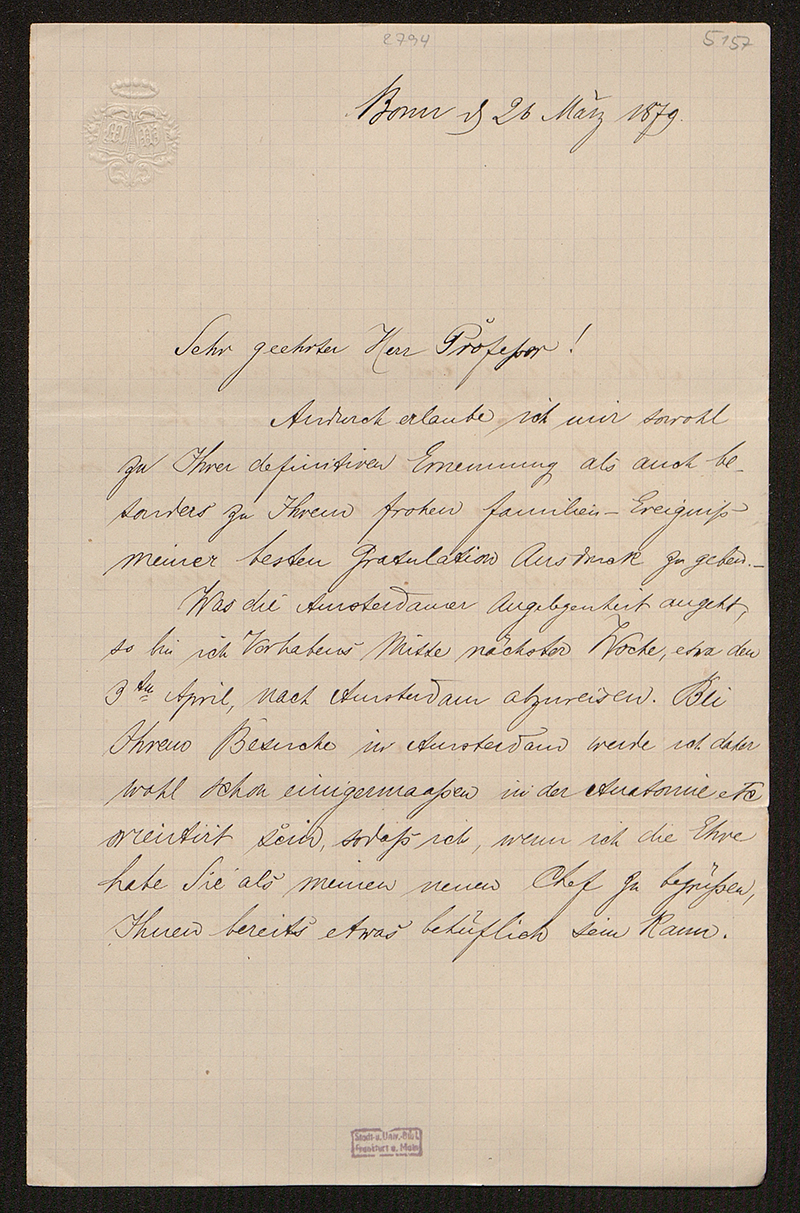 2794
5157
MW
Bonn d 26 März 1879.
Sehr geehrter Herr Professor!
Andurch erlaube ich mir sowohl
zu Ihrer definitiven Ernennung als auch be-
sonders zu Ihrem frohen Familien-Ereigniß
meiner besten Gratulation Ausdruck zu geben. –
Was die Amsterdamer Angelegenheit angeht,
so bin ich Vorhabens Mitte nächster Woche, etwa den
3ten April, nach Amsterdam abzureisen. Bei
Ihrem Besuche in Amsterdam werde ich daher
wohl schon einigermaaßen in der Anatomie etc
orientirt sein, sodaß ich, wenn ich die Ehre
habe Sie als meinen neuen Chef zu begrüßen,
Ihnen bereits etwas behüflich sein kann.
Stadt-u. Univ.-Bibl.
Frankfurt a. Main